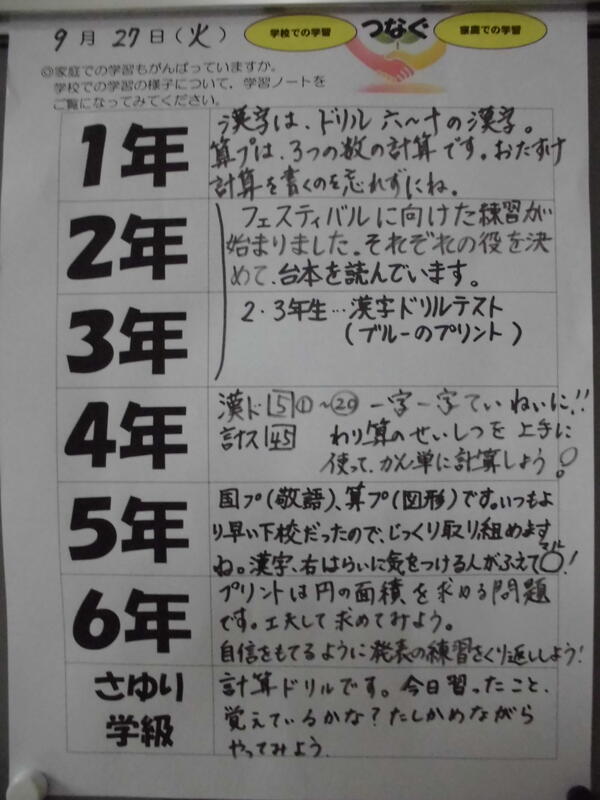 9月27日(火)
学校での学習
つなぐ
家庭での学習
◎家庭での学習もがんばっていますか。
学校での学習の様子について、学習ノートを
ご覧になってみてください。
1年
漢字は、ドリル六〜十の漢字。
算プは、3つの数の計算です。おたすけ
計算を書くのを忘れずにね。
2年
フェスティバルに向けた練習が
始まりました。それぞれの役を決
めて、台本を読んでいます。
3年
2・3年生…漢字ドリルテスト
(ブルーのプリント)
4年
漢ド5①〜⑳ 一字一字ていねいに!!
計ス45 わり算のせいしつを上手に
使って、かん単に計算しよう!
5年
国プ(敬語)、算プ(図形)です。いつもよ
り早い下校だったので、じっくり取り組めます
ね。漢字、右はらいに気をつける人がふえて〇!
マル
6年
プリントは円の面積を求める問題
です。工夫して求めてみよう。
自信をもてるように発表の練習をくり返ししよう!
さゆり
学級
計算ドリルです。今日習ったこと、
覚えているかな?たしかめながら
やってみよう。